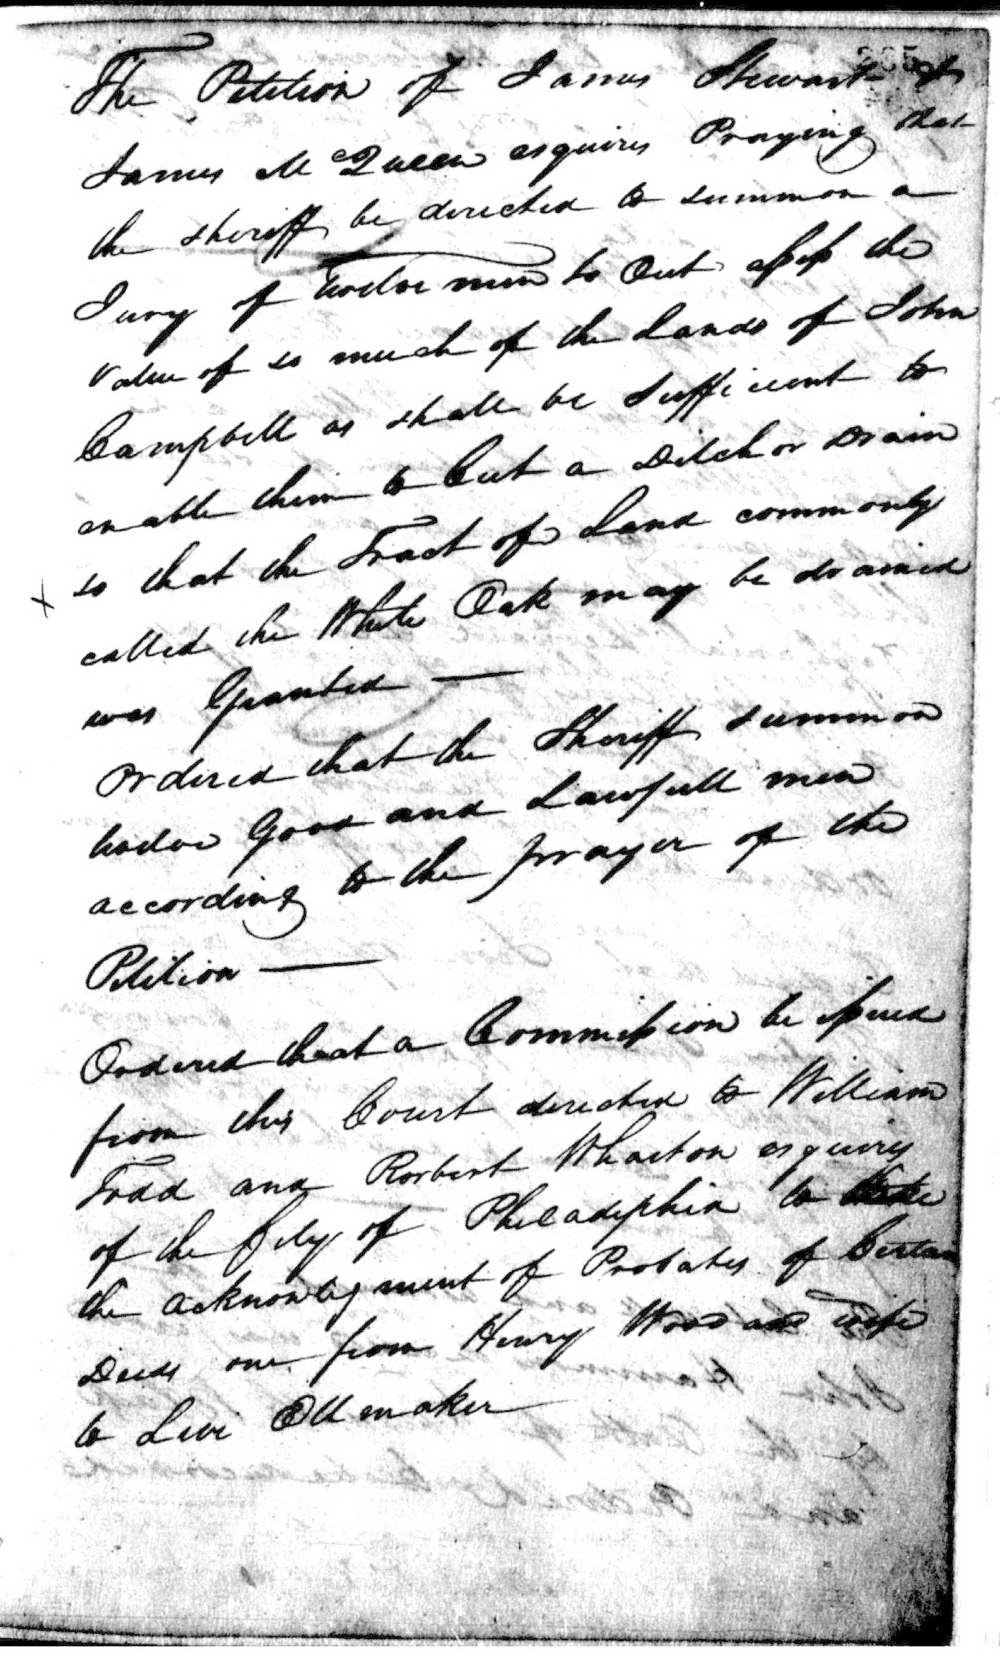 The Petition of James Stewart &
James McQueen esquires Praying that
the sheriff be directed to summon a
Jury of twelve men to Out assess the
value of so much of the Lands of John
Campbell as shall be Sufficient to
enable them to Cut a Ditch or Drain
so that the Tract of Land commonly
x
called the White Oak may be drained
was Granted —
Ordered that the Sheriff summon
twelve Good and Lawfull men
according to the prayer of the
Petition —
Ordered that a Commission be issued
from this Court directed to William
Todd and Robert Wharton esquires
of the City of Philadelphia to take
the acknowlegment of Probates of Certain
Deeds one from Henry Wood and wife
to Levi Ollmaker